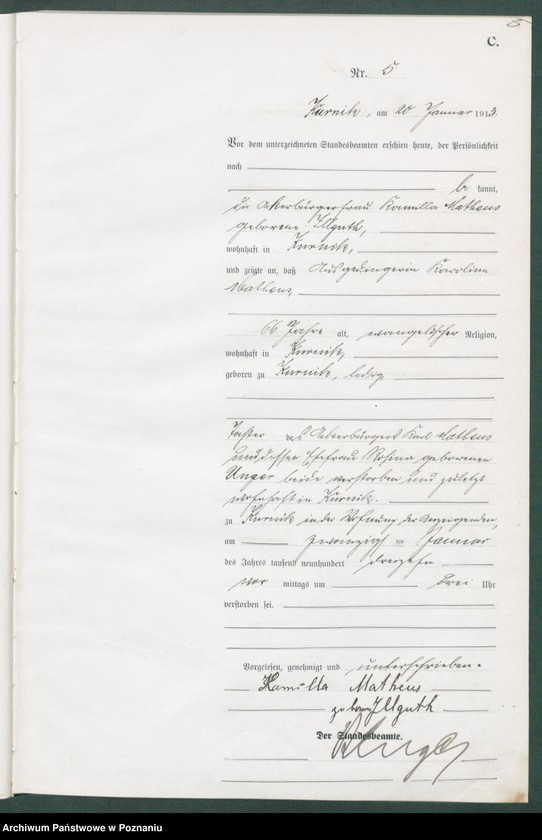 C.
Nr. 5
Kurnik, am 20 Januar 1913.
Vor dem unterzeichneten Standesbeamten erschien heute, der Persönlichkeit
nach
be kannt,
die Ackerbürgerfrau Kamilla Matheus
geborene Illguth,
wohnhaft in Kurnik,
und zeigte an, daß Ausgedingerin Karoline
Matheus,
66 Jahre alt, evangelischer Religion,
wohnhaft in Kurnik,
geboren zu Kurnik, ledig
Tochter des Ackerbürgers Karl Matheus
und dessen Ehefrau Rosina geborenen
Unger beide verstorben und zuletzt
wohnhaft in Kurnik.
zu Kurnik in der Wohnung der Anzeigenden,
am zwanzigsten Januar
des Jahres tausend neunhundert dreizehn
vor mittags um drei Uhr
verstorben sei.
Vorgelesen, genehmigt und unterschrieben.
Kamilla Matheus
geborene Illguth
Der Standesbeamte.
Archiwum Państwowe w Poznaniu